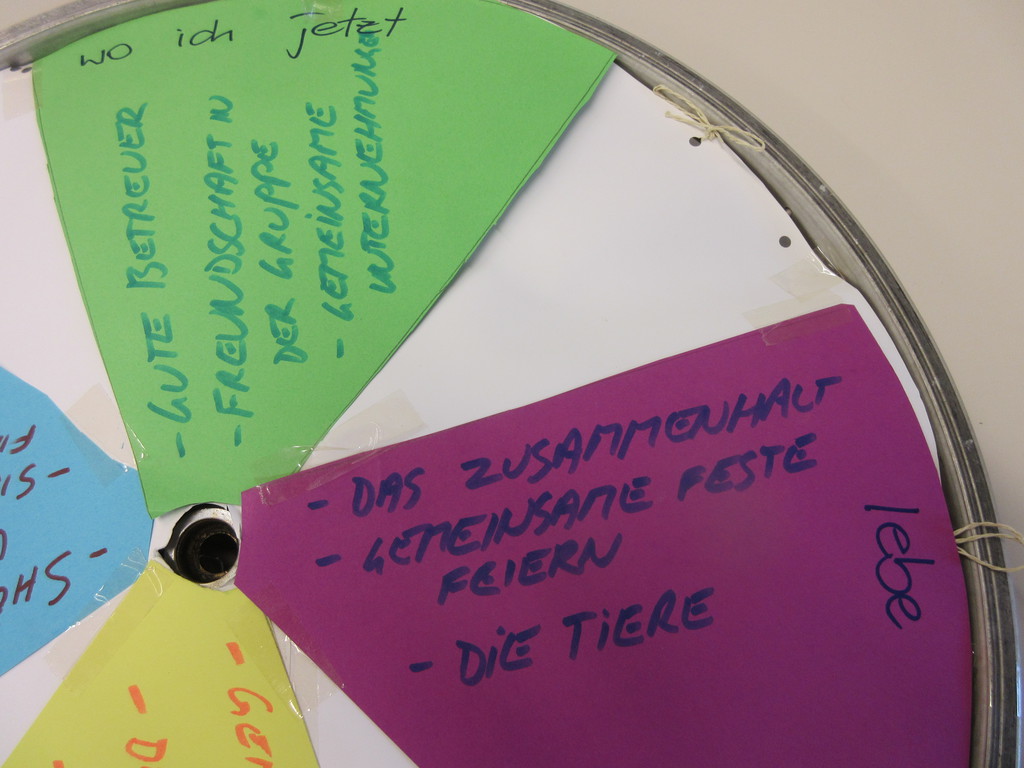 wo ich jetzt
- GUTE BETREUER
- FREUNDSCHAFT IN
DER GRUPPE
- GEMEINSAME
UNTERNEHMUNGEN
- DAS ZUSAMMENHALT
- GEMEINSAME FESTE
FEIERN
- DIE TIERE
lebe